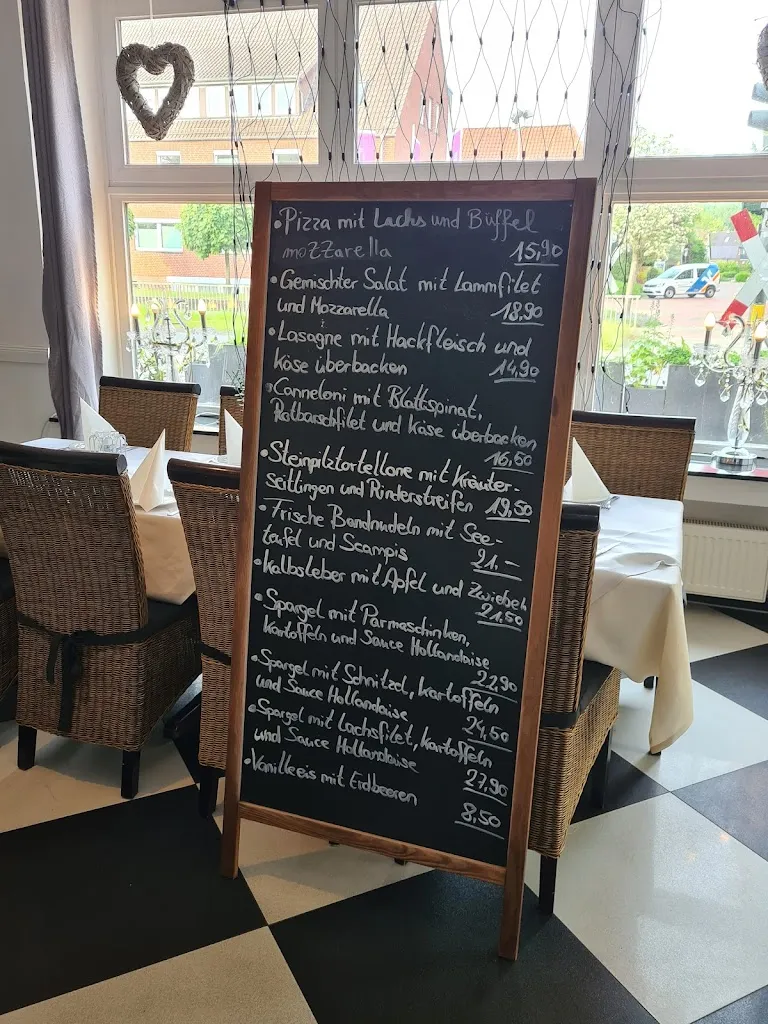 • Pizza mit Lachs und Büffel
mozzarella 15,90
• Gemischter Salat mit Lammfilet
und Mozzarella 18,90
• Lasagne mit Hackfleisch und
Käse überbacken 14,90
• Canneloni mit Blattspinat,
Rotbarschfilet und Käse überbacken
16,50
• Steinpilztortellone mit Kräuter-
seitlingen und Rinderstreifen 19,50
• Frische Bandnudeln mit See-
teufel und Scampis 21,-
• Kalbsleber mit Apfel und Zwiebeln
21,50
• Spargel mit Parmaschinken,
Kartoffeln und Sauce Hollandaise
22,90
• Spargel mit Schnitzel, Kartoffeln
und Sauce Hollandaise 24,50
• Spargel mit Lachsfilet, Kartoffeln
und Sauce Hollandaise 27,90
• Vanilleeis mit Erdbeeren
8,50